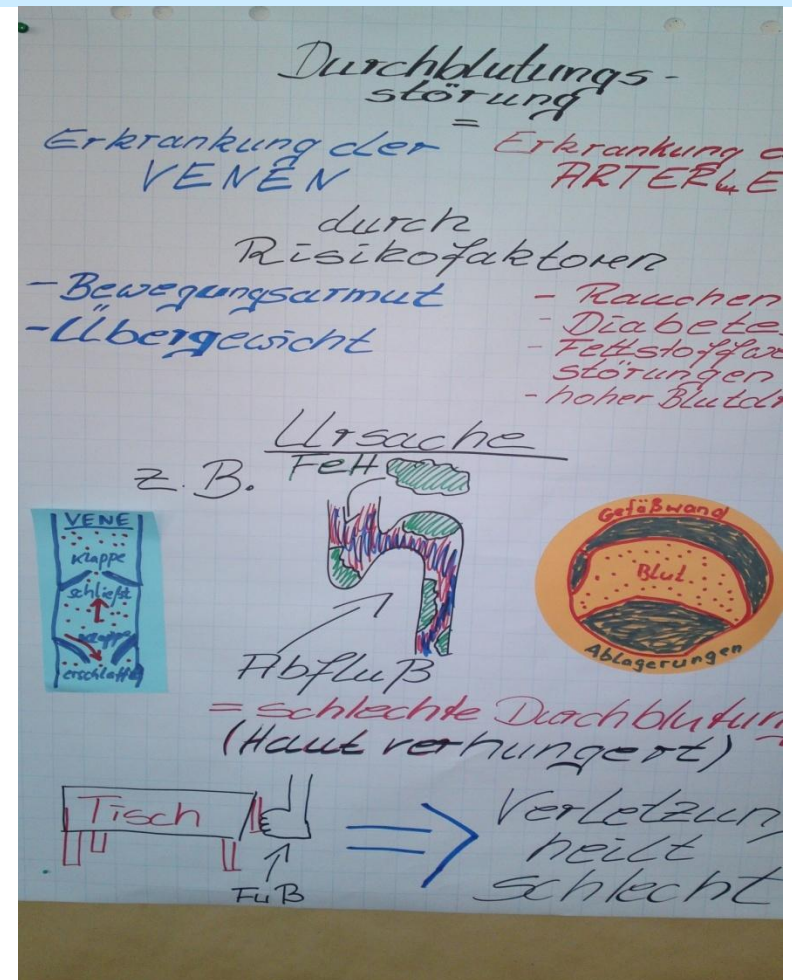 Durchblutungs-
störung
=
Erkrankung der
VENEN
Erkrankung d
ARTERIE
durch
Risikofaktoren
- Bewegungsarmut
- Übergewicht
- Rauchen
- Diabete
- Fettstoffwe
störungen
- hoher Blutdr
Ursache
z. B.
Fett
VENE
Klappe
schließt
Klappe
erschlafft
Abfluß
Gefäßwand
Blut
Ablagerungen
= schlechte Durchblutun
(Haut verhungert)
Tisch
Fuß
Verletzun
heilt
schlecht